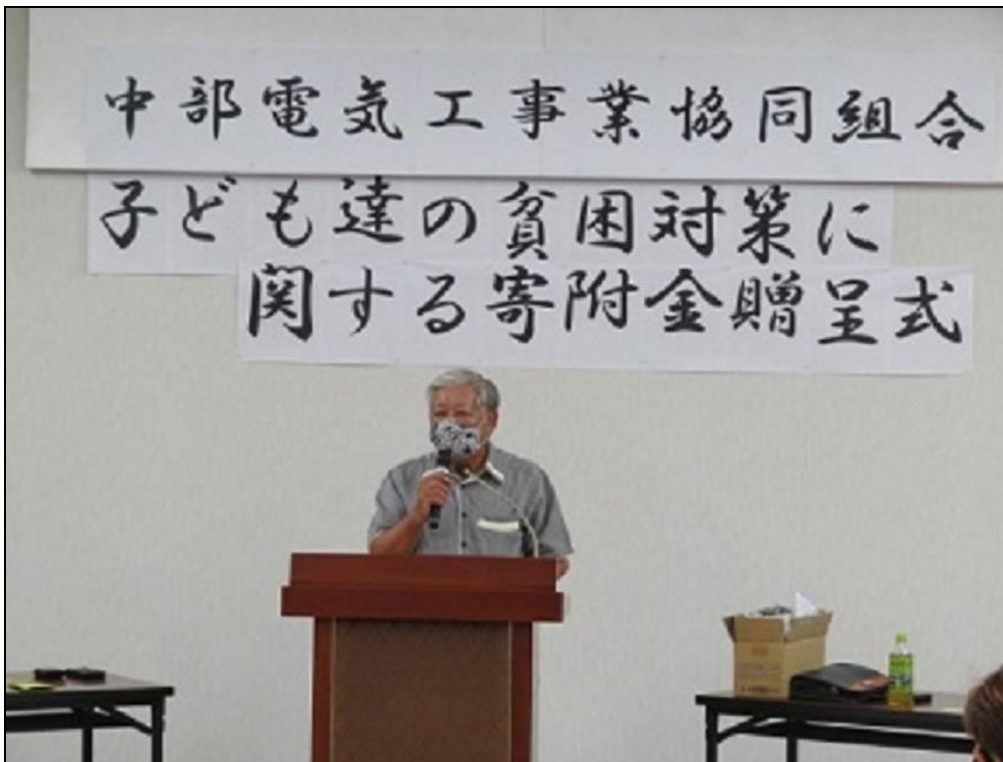 中部電気工事業協同組合
子ども達の貧困対策に
関する寄附金贈呈式